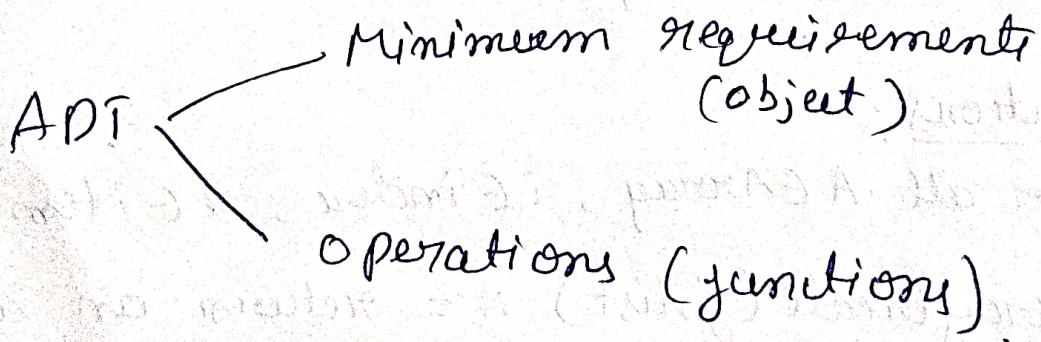 Minimum requirements
(object)
ADT
operations (functions)